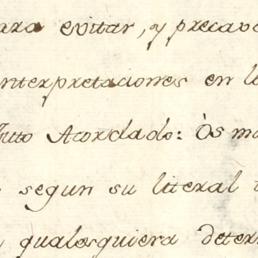 ara evitar, y precave
nterpretaciones en l
Auto Acordado: Os m
segun su literal
qualesquiera deter